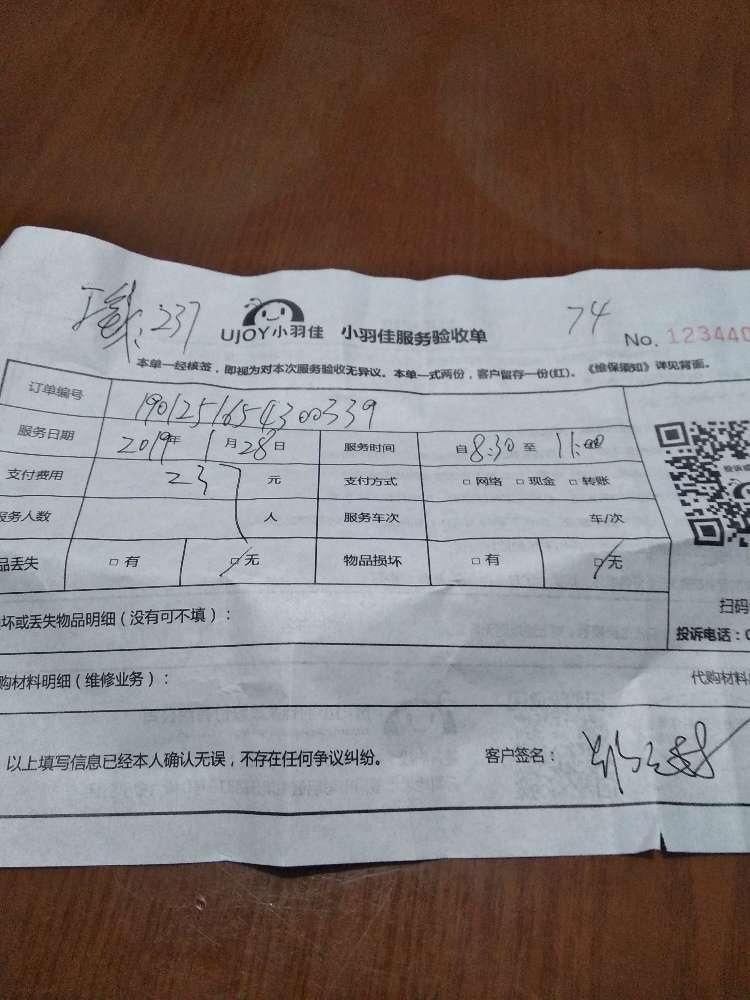 237
UJOY小羽佳 小羽佳服务验收单
74
No. 123440
本单一经核签，即视为对本次服务验收无异议。本单一式两份，客户留存一份(红)。《维保须知》详见背面。
订单编号 1901251654300339
服务日期 2019年1月28日 服务时间 自8:30至11:00
支付费用 237元 支付方式 □网络 □现金 □转账
服务人数 人 服务车次 车/次
品丢失 □有 □无 物品损坏 □有 □无
坏或丢失物品明细（没有可不填）：
扫码
投诉电话：0
购材料明细（维修业务）： 代购材料
以上填写信息已经本人确认无误，不存在任何争议纠纷。 客户签名：